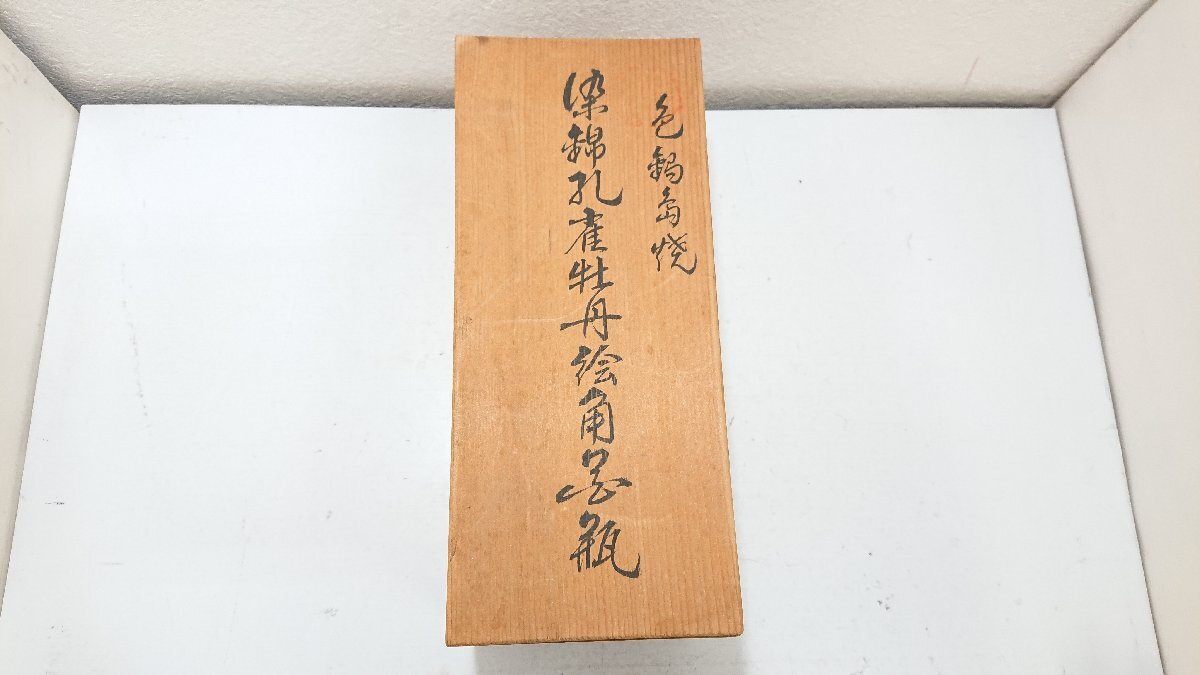 色鍋島焼
染錦孔雀牡丹絵角花瓶